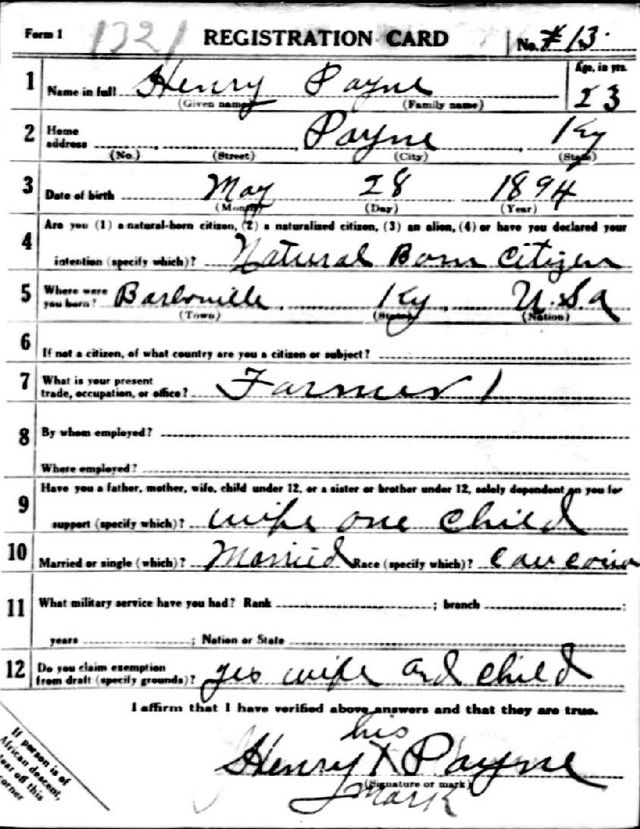 Form 1 1321 REGISTRATION CARD No. #13
1 Name in full Henry Payne Age, in yrs. 23
(Given name) (Family name)
2 Home address Payne Ky
(No.) (Street) (City) (State)
3 Date of birth May 28 1894
(Month) (Day) (Year)
4 Are you (1) a natural-born citizen, (2) a naturalized citizen, (3) an alien, (4) or have you declared your
intention (specify which)? Natural Born Citizen
5 Where were you born? Barbourville Ky U.S.a
(Town) (State) (Nation)
6
If not a citizen, of what country are you a citizen or subject?
7 What is your present trade, occupation, or office? Farmer 1
8 By whom employed?
Where employed?
9 Have you a father, mother, wife, child under 12, or a sister or brother under 12, solely dependent on you for
support (specify which)? wife one child
10 Married or single (which)? Married Race (specify which)?
11 What military service have you had? Rank ; branch ;
years ; Nation or State
12 Do you claim exemption from draft (specify grounds)? yes wife and child
I affirm that I have verified above answers and that they are true.
his
Henry X Payne
(Signature or mark)
mark
If person is of
African descent,
tear off this
corner